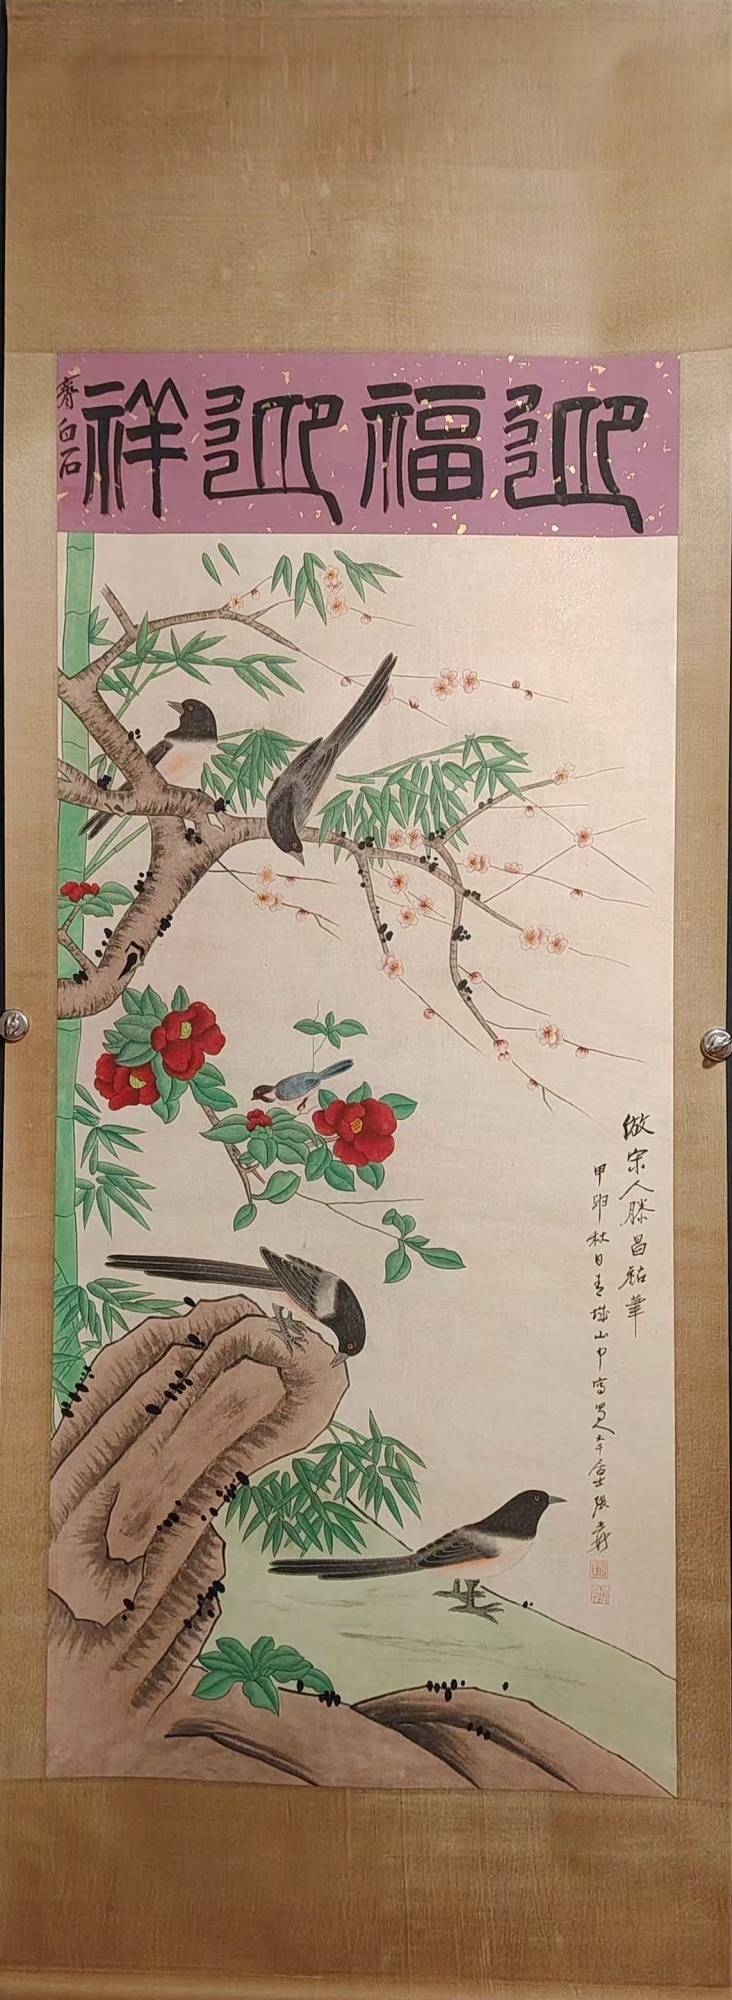 迎福迎祥
齊白石
倣宋人滕昌祐筆
甲申秋日青城山中寫蜀人大千居士張爰